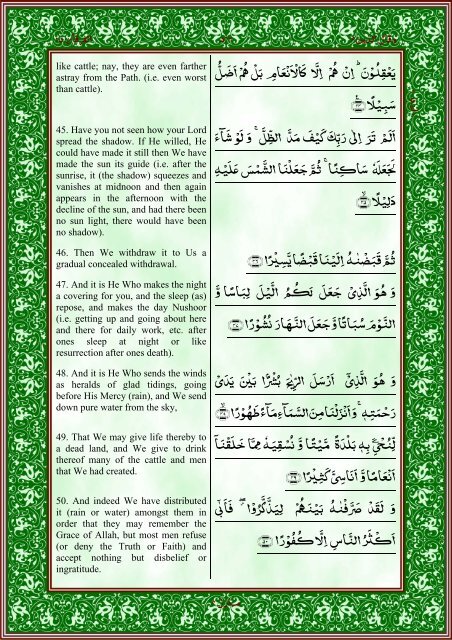 like cattle; nay, they are even farther
astray from the Path. (i.e. even worst
than cattle).
45. Have you not seen how your Lord
spread the shadow. If He willed, He
could have made it still then We have
made the sun its guide (i.e. after the
sunrise, it (the shadow) squeezes and
vanishes at midnoon and then again
appears in the afternoon with the
decline of the sun, and had there been
no sun light, there would have been
no shadow).
46. Then We withdraw it to Us a
gradual concealed withdrawal.
47. And it is He Who makes the night
a covering for you, and the sleep (as)
repose, and makes the day Nushoor
(i.e. getting up and going about here
and there for daily work, etc. after
ones sleep at night or like
resurrection after ones death).
48. And it is He Who sends the winds
as heralds of glad tidings, going
before His Mercy (rain), and We send
down pure water from the sky,
49. That We may give life thereby to
a dead land, and We give to drink
thereof many of the cattle and men
that We had created.
50. And indeed We have distributed
it (rain or water) amongst them in
order that they may remember the
Grace of Allah, but most men refuse
(or deny the Truth or Faith) and
accept nothing but disbelief or
ingratitude.
يَعْقِلُوْنَ ؕ اِنْ هُمْ اِلَّا كَالْاَنْعَامِ بَلْ هُمْ اَضَلُّ
سَبِيْلًا ﴿۴۴﴾
اَلَمْ تَرَ اِلٰى رَبِّكَ كَيْفَ مَدَّ الظِّلَّ ۚ وَ لَوْ شَآءَ
لَجَعَلَهٗ سَاكِنًا ۚ ثُمَّ جَعَلْنَا الشَّمْسَ عَلَيْهِ
دَلِيْلًا ﴿۴۵﴾
ثُمَّ قَبَضْنٰهُ اِلَيْنَا قَبْضًا يَّسِيْرًا ﴿۴۶﴾
وَ هُوَ الَّذِىْ جَعَلَ لَكُمُ الَّيْلَ لِبَاسًا وَّ
النَّوْمَ سُبَاتًا وَّ جَعَلَ النَّهَارَ نُشُوْرًا ﴿۴۷﴾
وَ هُوَ الَّذِىْۤ اَرْسَلَ الرِّيٰحَ بُشْرًۢا بَيْنَ يَدَىْ
رَحْمَتِهٖ ۚ وَ اَنْزَلْنَا مِنَ السَّمَآءِ مَآءً طَهُوْرًا ﴿۴۸﴾
لِّنُحْیَِۧ بِهٖ بَلْدَةً مَّيْتًا وَّ نُسْقِيَهٗ مِمَّا خَلَقْنَاۤ
اَنْعَامًا وَّ اَنَاسِىَّ كَثِيْرًا ﴿۴۹﴾
وَ لَقَدْ صَرَّفْنٰهُ بَيْنَهُمْ لِيَذَّكَّرُوْا ۖ فَاَبٰٓى
اَكْثَرُ النَّاسِ اِلَّا كُفُوْرًا ﴿۵۰﴾